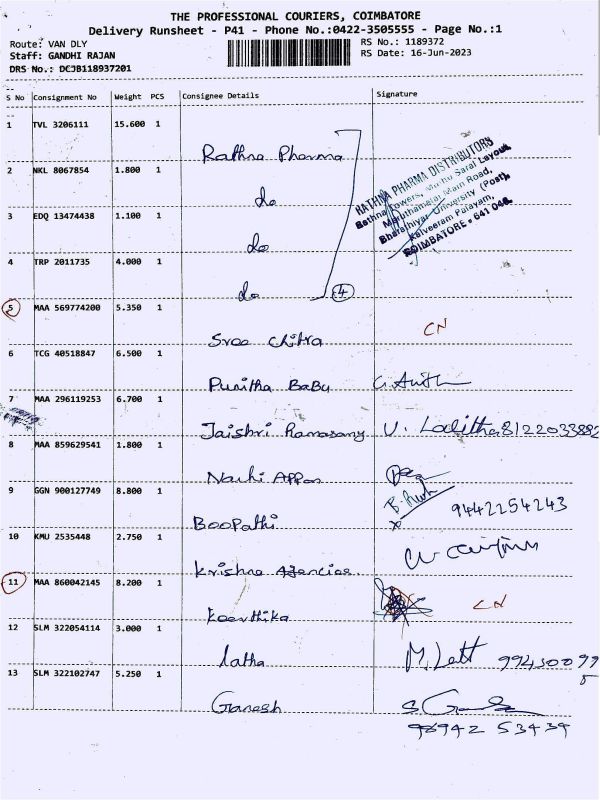 THE PROFESSIONAL COURIERS, COIMBATORE
Delivery Runsheet - P41 - Phone No.:0422-3505555 - Page No.:1
Route: VAN DLY
RS No.: 1189372
Staff: GANDHI RAJAN
RS Date: 16-Jun-2023
DRS No.: DCJB118937201
S No Consignment No Weight PCS Consignee Details Signature
1 TVL 3206111 15.600 1
Rathna Pharma
RATHNA PHARMA DISTRIBUTORS
Rathna Towers, Muthu Sarai Layout,
Maruthamalai Main Road,
Bharathiyar University (Post),
Kalveeram Palayam,
COIMBATORE - 641 046.
2 NKL 8067854 1.800 1
do
3 EDQ 13474438 1.100 1
do
4 TRP 2011735 4.000 1
do 4
5 MAA 569774200 5.350 1
Sree Chitra CN
6 TCG 40518847 6.500 1
Punitha Babu
7 MAA 296119253 6.700 1
Jaishri Ramasamy V. Lalitha 8122033882
8 MAA 859629541 1.800 1
Nachi Appan
9 GGN 900127749 8.800 1
Boopathi 9442254243
10 KMU 2535448 2.750 1
Krishna Agencies
11 MAA 860042145 8.200 1
Keerthika CN
12 SLM 322054114 3.000 1
latha 9943009995
13 SLM 322102747 5.250 1
Ganesh
98942 53439